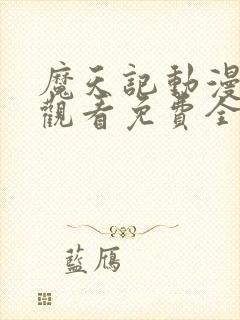 魔天記動漫
觀看免費全
藍鳫